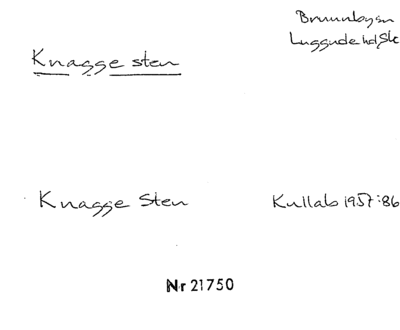 Brunnbysn
Luggude hd Sk
Knagge sten
Knagge Sten
Kullab 1957:86
Nr 21750